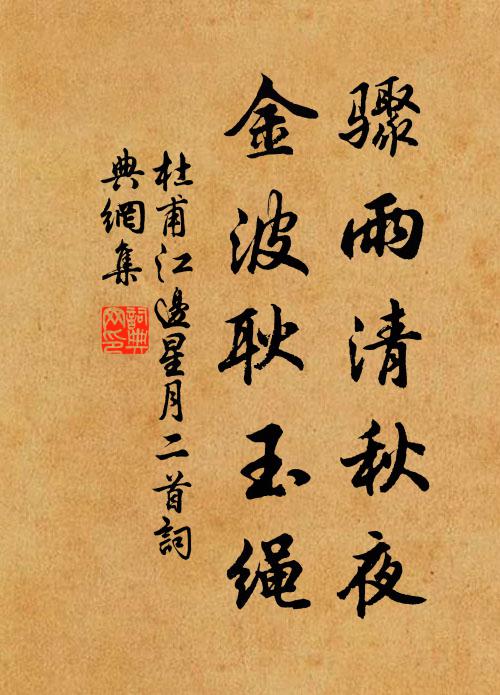 骤雨清秋夜
金波耿玉绳
杜甫江邊星月二首詞
典網集
詞典网印